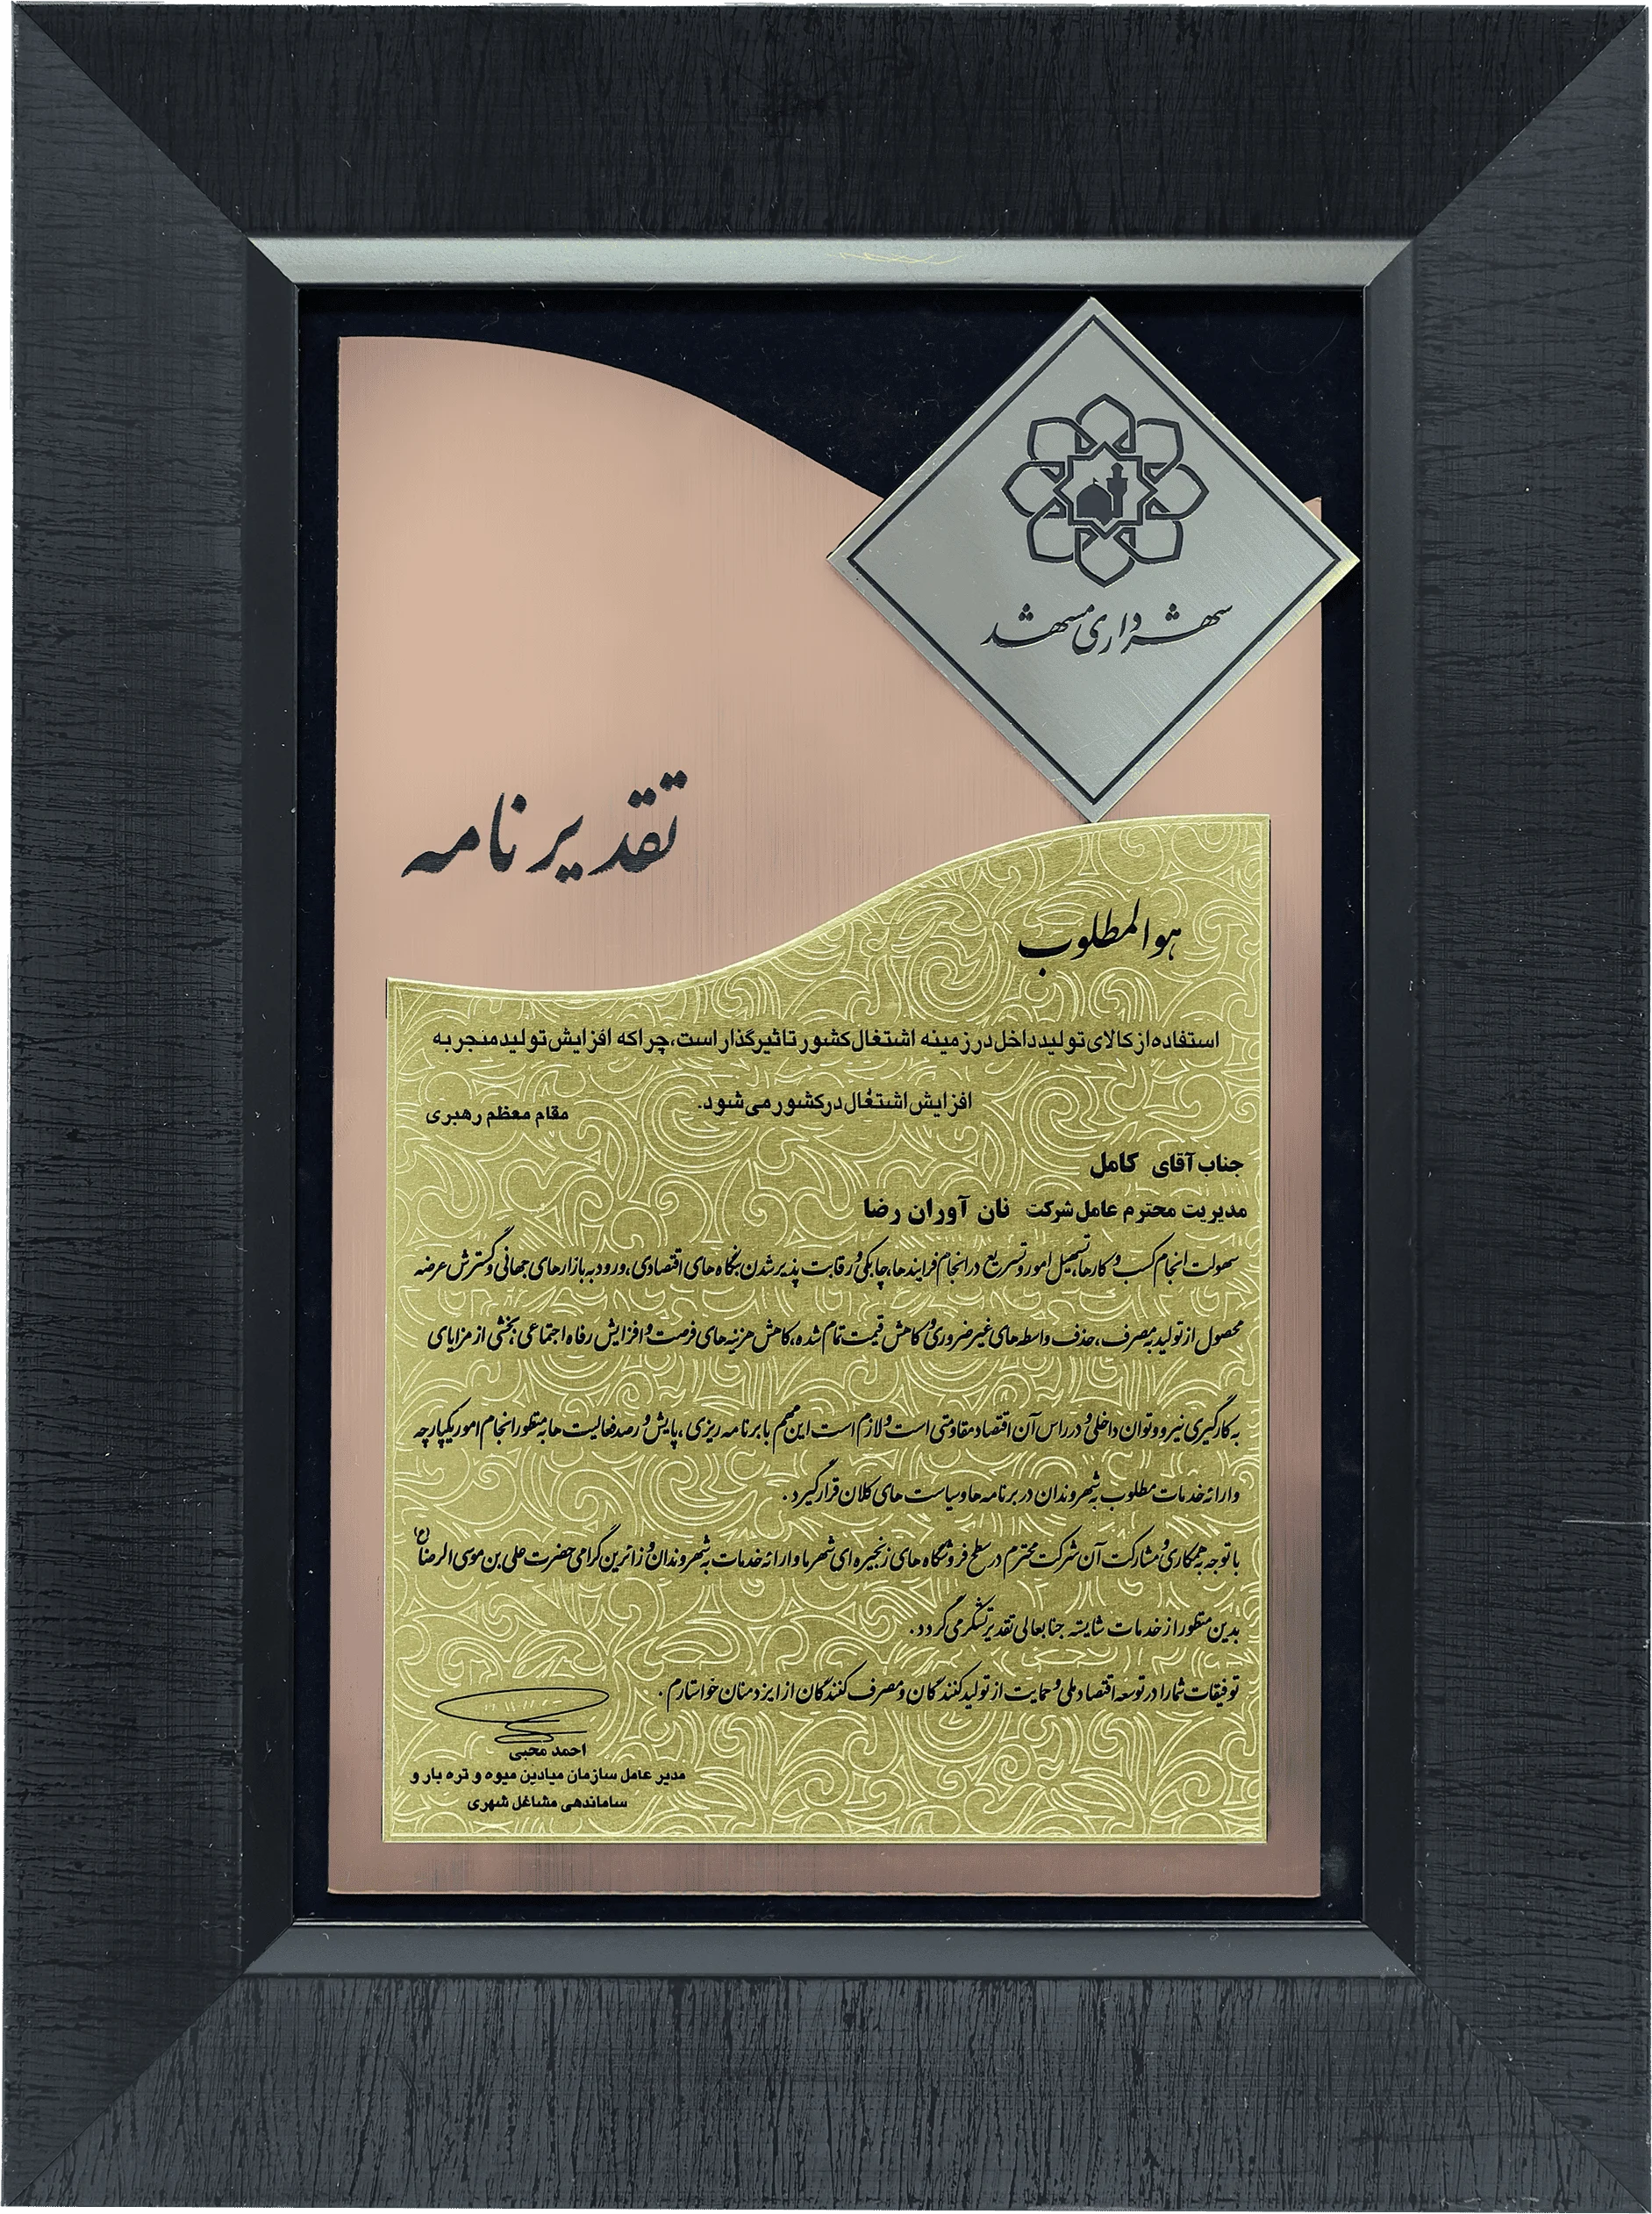 شهرداری مشهد
تقدیرنامه
هوالمطلوب
استفاده از کالای تولید داخل در زمینه اشتغال کشور تاثیرگذار است، چرا که افزایش تولید منجر به
افزایش اشتغال در کشور می‌شود.
مقام معظم رهبری
جناب آقای کامل
مدیریت محترم عامل شرکت نان آوران رضا
سهولت انجام کسب و کارها، تسهیل امور و تسریع در انجام فرایندها، چابکی و رقابت پذیر شدن بنگاه های اقتصادی، ورود به بازارهای جهانی و گسترش عرضه
محصول از تولید به مصرف، حذف واسطه های غیرضروری و کاهش قیمت تمام شده، کاهش هزینه های فرصت و افزایش رفاه اجتماعی، بخشی از مزایای
به کارگیری نیرو و توان داخلی و در راس آن اقتصاد مقاومتی است و لازم است این مهم با برنامه ریزی، پایش و رصد فعالیت ها به منظور انجام امور یکپارچه
و ارائه خدمات مطلوب به شهروندان در برنامه ها و سیاست های کلان قرار گیرد.
با توجه به همکاری و مشارکت آن شرکت محترم در سطح فروشگاه های زنجیره ای شهر ما و ارائه خدمات به شهروندان و زائرین گرامی حضرت علی بن موسی الرضا (ع)
بدین منظور از خدمات شایسته جنابعالی تقدیر و تشکر می گردد.
توفیقات شما را در توسعه اقتصاد ملی و حمایت از تولیدکنندگان و مصرف کنندگان از ایزد منان خواستارم.
احمد محبی
مدیر عامل سازمان میادین میوه و تره بار و
ساماندهی مشاغل شهری